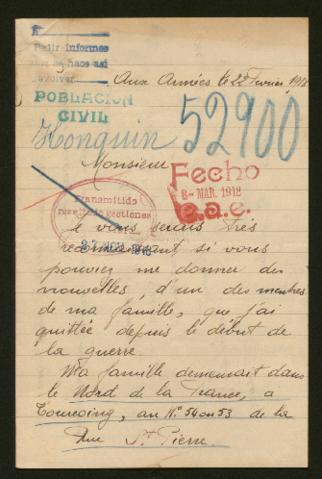 Pedir informes
devolver
Aux Armées le 22 Fevrier 1918
POBLACION
CIVIL
Honquin 52900
Monsieur
Fecho
8-MAR. 1918
e.a.e.
Transmitido
resultado gestiones
Je vous serais très
reconnaissant, si vous
pouviez me donner des
nouvelles, d'un des membres
de ma famille, que j'ai
quittée depuis le début de
la guerre
Ma famille demeurait dans
le Nord de la France, a
Tourcoing, au N° 54 ou 53 de la
Rue St Pierre